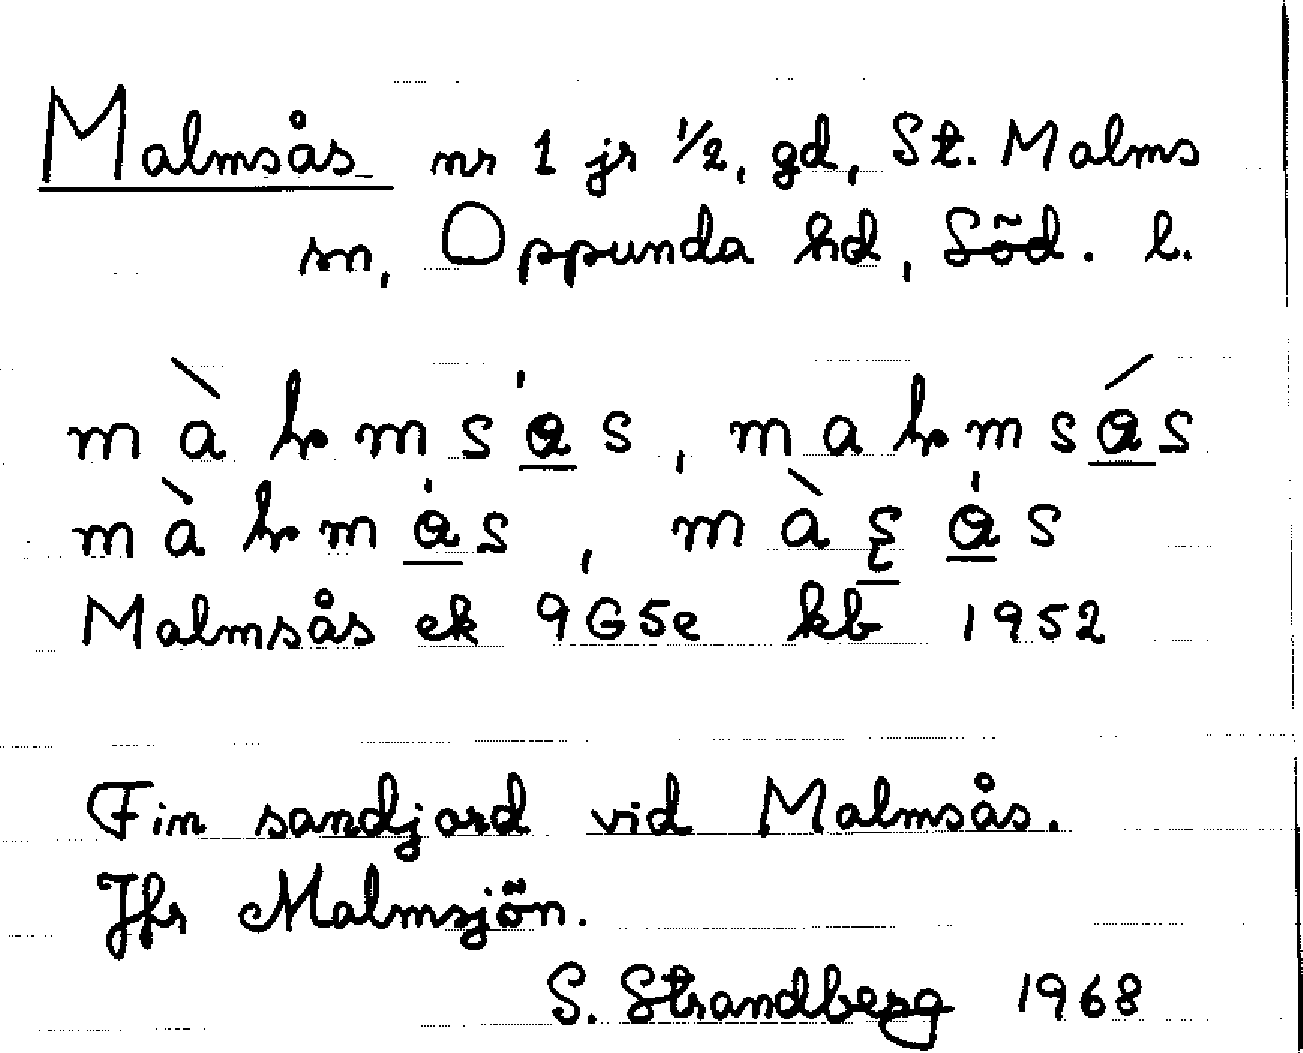 Malmsås nr 1 jr 1/2, gd, St. Malms
sn, Oppunda hd, Söd. l.
Malmsås ek 9G5e kb 1952
Fin sandjord vid Malmsås.
Jfr Malmsjön.
S. Strandberg 1968